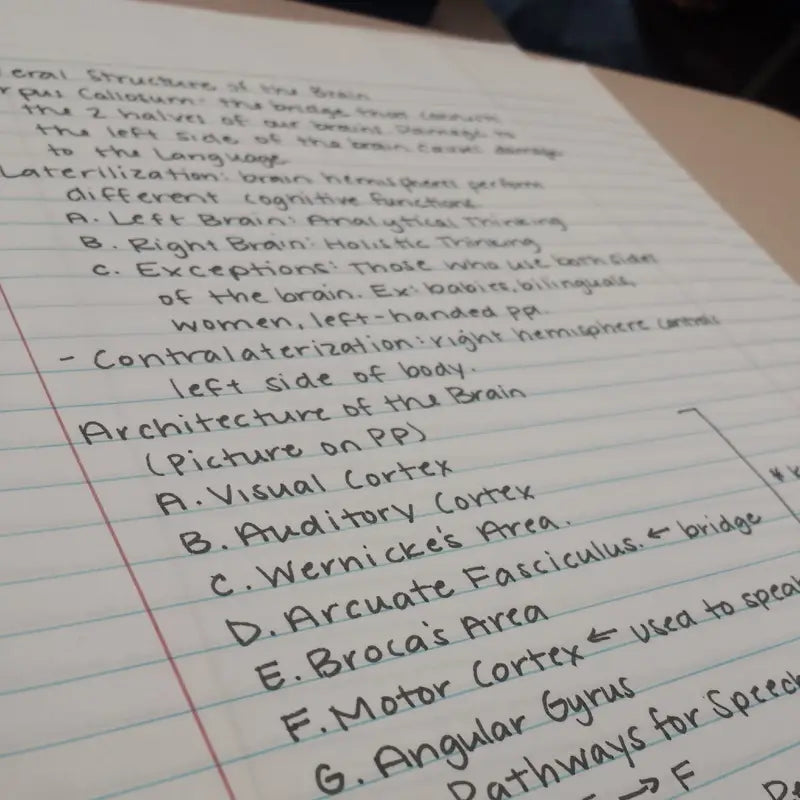 eral Structure of the Brain
rpus Callosum: the bridge that connects
the 2 halves of our brains. Damage to
the left side of the brain causes damage
to the Language
Laterilization: brain hemispheres perform
different cognitive functions
A. Left Brain: Analytical Thinking
B. Right Brain: Holistic Thinking
C. Exceptions: Those who use both sides
of the brain. Ex: babies, bilinguals,
women, left-handed ppl.
- Contralaterization: right hemisphere controls
left side of body.
Architecture of the Brain
(Picture on PP)
A. Visual Cortex
B. Auditory Cortex
C. Wernicke's Area.
D. Arcuate Fasciculus. ← bridge
E. Broca's Area
F. Motor Cortex ← used to speak
G. Angular Gyrus
Pathways for Speech
→ F